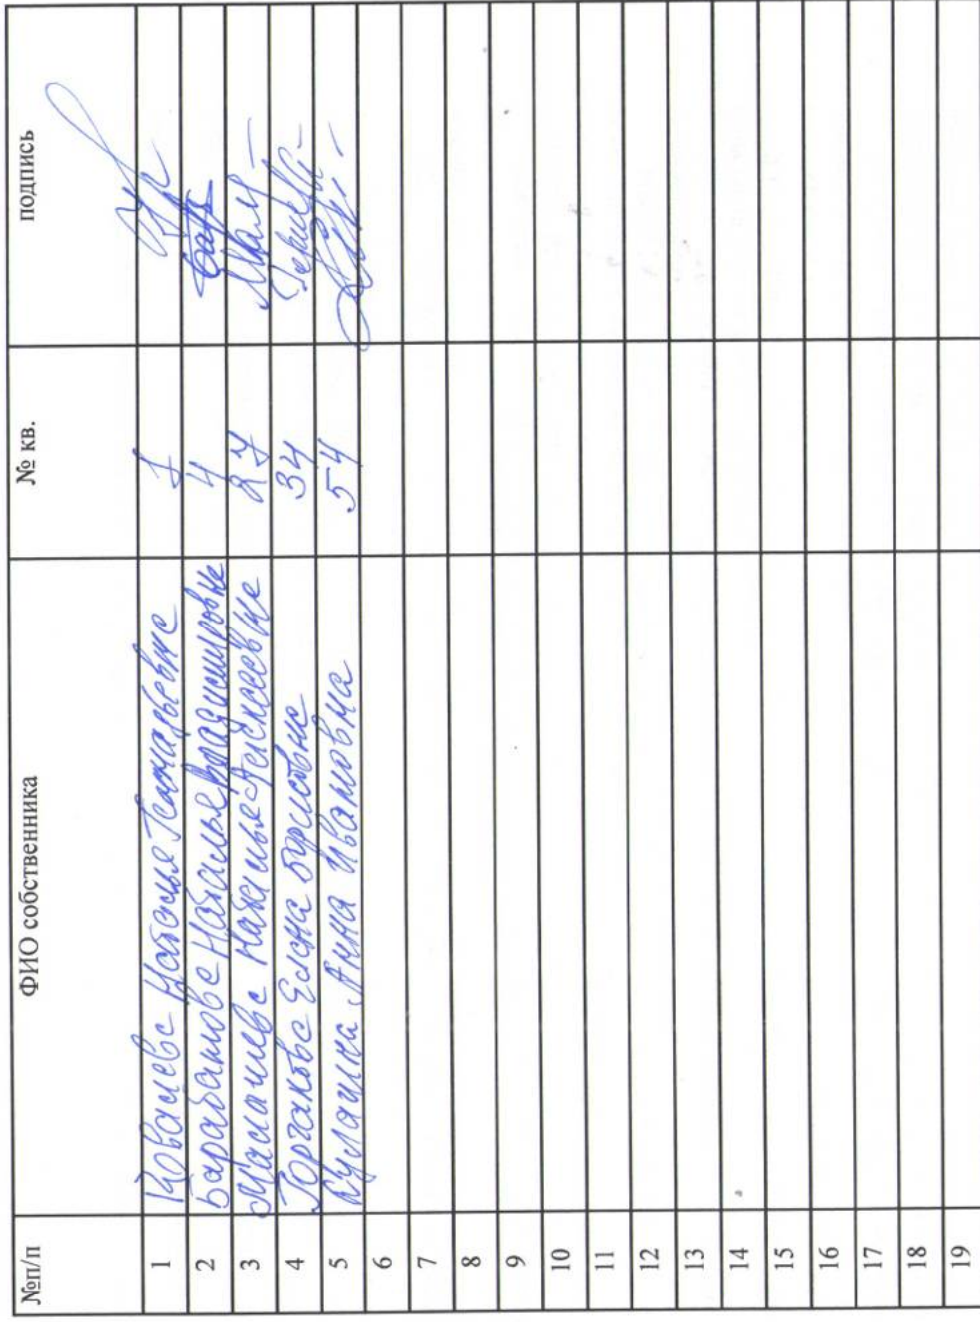 №п/п ФИО собственника № кв. подпись
1 Ковалева Наталья Геннадьевна 1
2 Барабанова Наталья Владимировна 4
3 Наталья Алексеевна 27
4 Елена Борисовна 34
5 Анна Ивановна 54
6
7
8
9
10
11
12
13
14
15
16
17
18
19